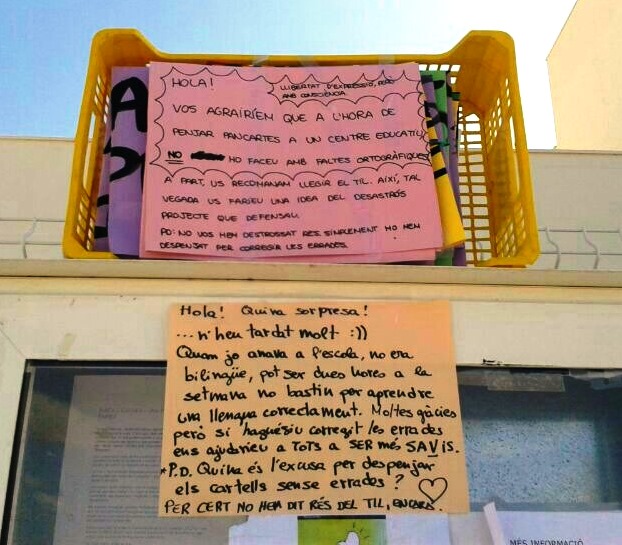 HOLA!
LLIBERTAT D'EXPRESSIÓ, PERÒ
AMB CONSCIÈNCIA
VOS AGRAIRÍEM QUE A L'HORA DE
PENJAR PANCARTES A UN CENTRE EDUCATIU
NO HO FACEU AMB FALTES ORTOGRÀFIQUES
A PART, US RECOMANAM LLEGIR EL TIL. AIXÍ, TAL
VEGADA US FARÍEU UNA IDEA DEL DESASTRÓS
PROJECTE QUE DEFENSAU.
PD: NO VOS HEM DESTROSSAT RES, SIMPLEMENT HO HEM
DESPENJAT PER CORREGIR LES ERRADES.
Hola! Quina sorpresa!
...n'heu tardat molt :))
Quam jo anava a l'escola, no era
bilingüe, pot ser dues hores a la
setmana no bastin per aprendre
una llengua correctament. Moltes gàcies
però si haguésiu corregit les errades
ens ajudarieu a TOTS a SER més SAVIS.
*P.D. Quina és l'excusa per despenjar
els cartells sense errades?
PER CERT NO HEM DIT RÉS DEL TIL, ENCARA.
MÉS INFORMACIÓ